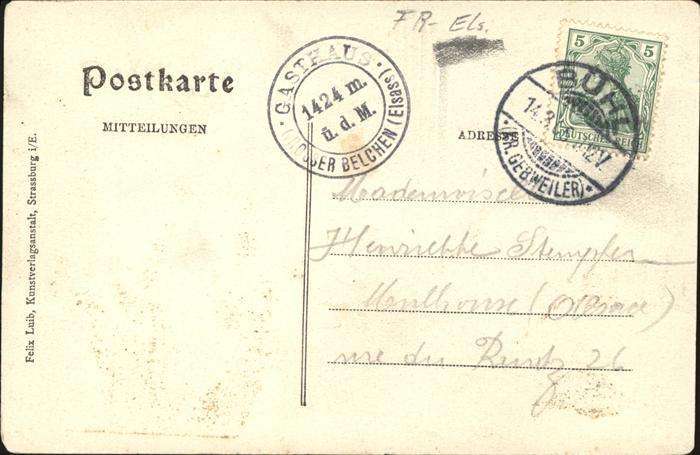 FR- Els.
Postkarte
MITTEILUNGEN
GASTHAUS
1424 m.
ü. d. M.
GROSSER BELCHEN (Elsass)
ADRESSE
5 5
DEUTSCHES REICH
BÜHL
14.
(KR. GEBWEILER)
Mademoiselle
Henriette Stempfer
Mulhouse (Alsace)
rue du Runtz 26
Felix Luib, Kunstverlagsanstalt, Strassburg i/E.